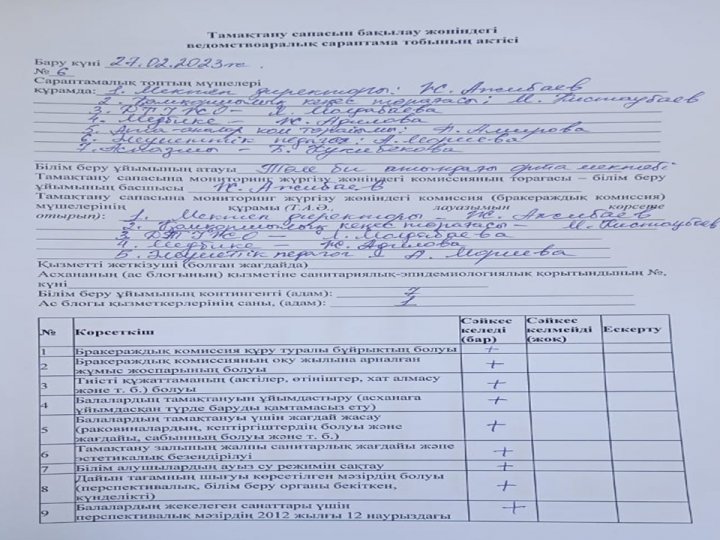 Тамақтану сапасын бақылау жөніндегі
ведомствоаралық сараптама тобының актісі
Бару күні 27.02.2023ж.
№ 6
Сараптамалық топтың мүшелері
құрамда: 1. Мектеп директоры: Ж. Апсибаев
2. Қамқоршылық кеңес төрағасы: М. Тыстаубаев
3. ДТІЖО – Л. Молдабаева
4. Медбике – Ж. Адилова
5. Ата-аналар ком төрайымы:
6. Әлеуметтік педагог: А. Моришева
7. Аспазшы – Б.
Білім беру ұйымының атауы Төле би атындағы орта мектебі
Тамақтану сапасына мониторинг жүргізу жөніндегі комиссияның төрағасы – білім беру
ұйымының басшысы Ж. Апсибаев
Тамақтану сапасына мониторинг жүргізу жөніндегі комиссия (бракераждық комиссия)
мүшелерінің құрамы (Т.А.Ә. лауазымын көрсете
отырып): 1. Мектеп директоры – Ж. Апсибаев
2. Қамқоршылық кеңес төрағасы – М. Тыстаубаев
3. ДТІЖО – Л. Молдабаева
4. Медбике – Ж. Адилова
5. Әлеуметтік педагог – А. Моришева
Қызметті жеткізуші (болған жағдайда)
Асхананың (ас блогының) қызметіне санитариялық-эпидемиологиялық қорытындының №,
күні
Білім беру ұйымының контингенті (адам): 7
Ас блогы қызметкерлерінің саны, (адам): 1
№ Көрсеткіш Сәйкес келеді (бар) Сәйкес келмейді (жоқ) Ескерту
1 Бракераждық комиссия құру туралы бұйрықтың болуы +
2 Бракераждық комиссияның оқу жылына арналған
жұмыс жоспарының болуы +
3 Тиісті құжаттаманың (актілер, өтініштер, хат алмасу
және т. б.) болуы +
4 Балалардың тамақтануын ұйымдастыру (асханаға
ұйымдасқан түрде баруды қамтамасыз ету) +
5 Балалардың тамақтануы үшін жағдай жасау
(раковиналардың, кептіргіштердің болуы және
жағдайы, сабынның болуы және т. б.) +
6 Тамақтану залының жалпы санитарлық жағдайы және
эстетикалық безендірілуі +
7 Білім алушылардың ауыз су режимін сақтау +
8 Дайын тағамның шығуы көрсетілген мәзірдің болуы
(перспективалық, білім беру органы бекіткен,
күнделікті) +
9 Балалардың жекелеген санаттары үшін
перспективалық мәзірдің 2012 жылғы 12 наурыздағы +